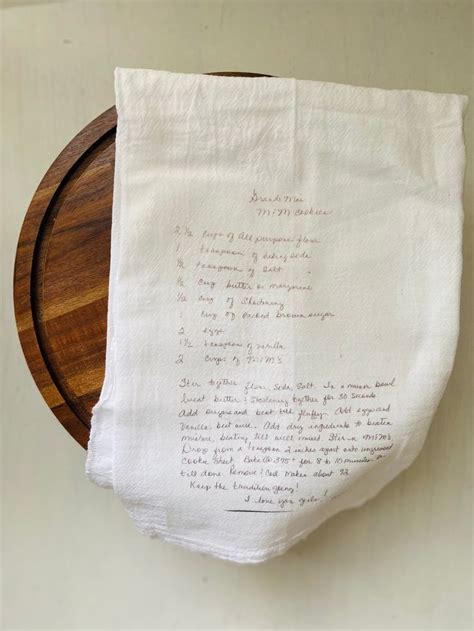 Grande Mas
M&M Cookies
2 1/2 Cups of All purpose flour
1 teaspoon of baking soda
1/2 teaspoon of salt
1/2 Cup butter or margarine
1/2 Cup of Shortening
1 Cup of packed brown sugar
2 eggs
1 1/2 teaspoon of vanilla
2 Cups of M&M's
Stir together flour, Soda, Salt. In a mixer bowl
beat butter & Shortening together for 30 seconds
Add sugar and beat till fluffy. Add eggs and
Vanilla, beat well. Add dry ingredients to beaten
mixture, beating till well mixed. Stir in M&M's
Drop from a teaspoon 2 inches apart onto ungreased
Cookie Sheet. Bake 375° for 8 to 10 minutes
till done. Remove & Cool. Makes about 72
Keep the tradition going!
I love you